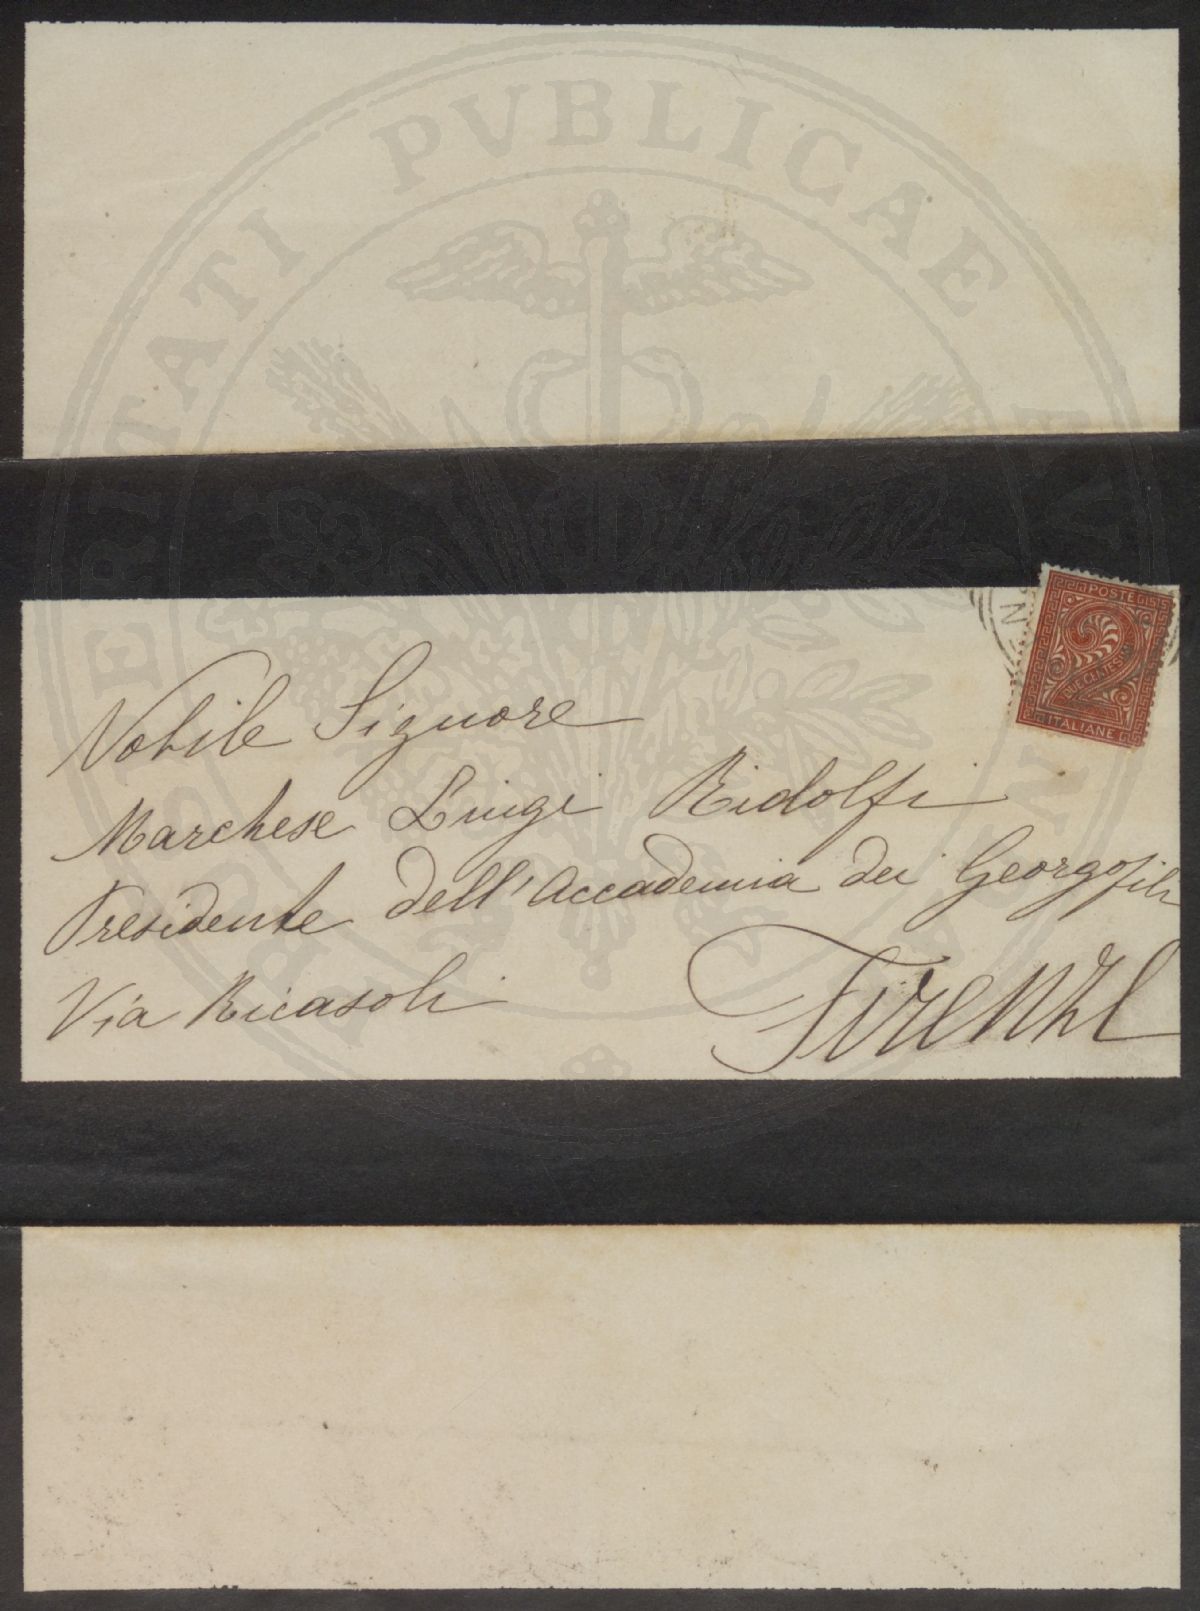 PVBLICAE
Nobile Signore
Marchese Luigi Ridolfi
Presidente dell'Accademia dei Georgofili
Via Ricasoli
Firenze
POSTE
DUE CENTESIMI
ITALIANE
N